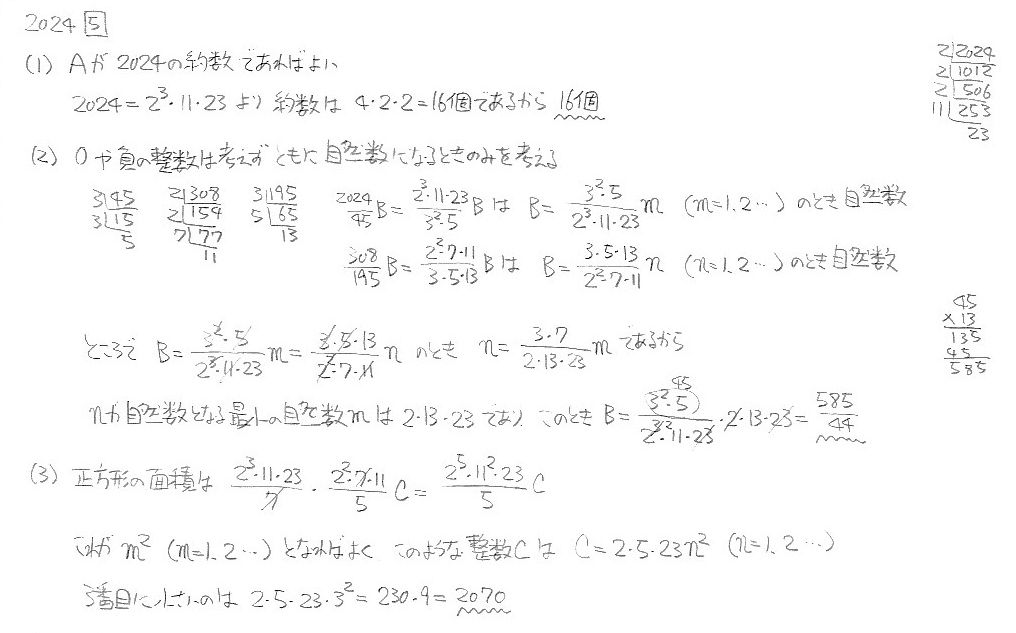 2024 5
(1) Aが2024の約数であればよい
2024=2³・11・23より 約数は 4・2・2=16個であるから 16個
2)2024
2)1012
2)506
11)253
23
(2) 0や負の整数は考えずともに自然数になるときのみを考える
3)45
3)15
5
2)308
2)154
7)77
11
3)195
5)65
13
2024/45 B = 2³・11・23/3²・5 B は B = 3²・5/2³・11・23 m (m=1.2…)のとき自然数
308/195 B = 2²・7・11/3・5・13 B は B = 3・5・13/2²・7・11 n (n=1.2…)のとき自然数
ところで B = 3²・5/2³・11・23 m = 3・5・13/2²・7・11 n のとき n = 3・7/2・13・23 m であるから
45
×13
135
45
585
nが自然数となる最小の自然数mは2・13・23であり このとき B = 3²・5/2³・11・23 ・2・13・23 = 585/44
45
2
(3) 正方形の面積は 2³・11・23/7 ・ 2²・7・11/5 C = 2⁵・11²・23/5 C
これが m² (m=1.2…) となればよく このような整数Cは C=2・5・23n² (n=1.2…)
3番目に小さいのは 2・5・23・3²=230・9=2070